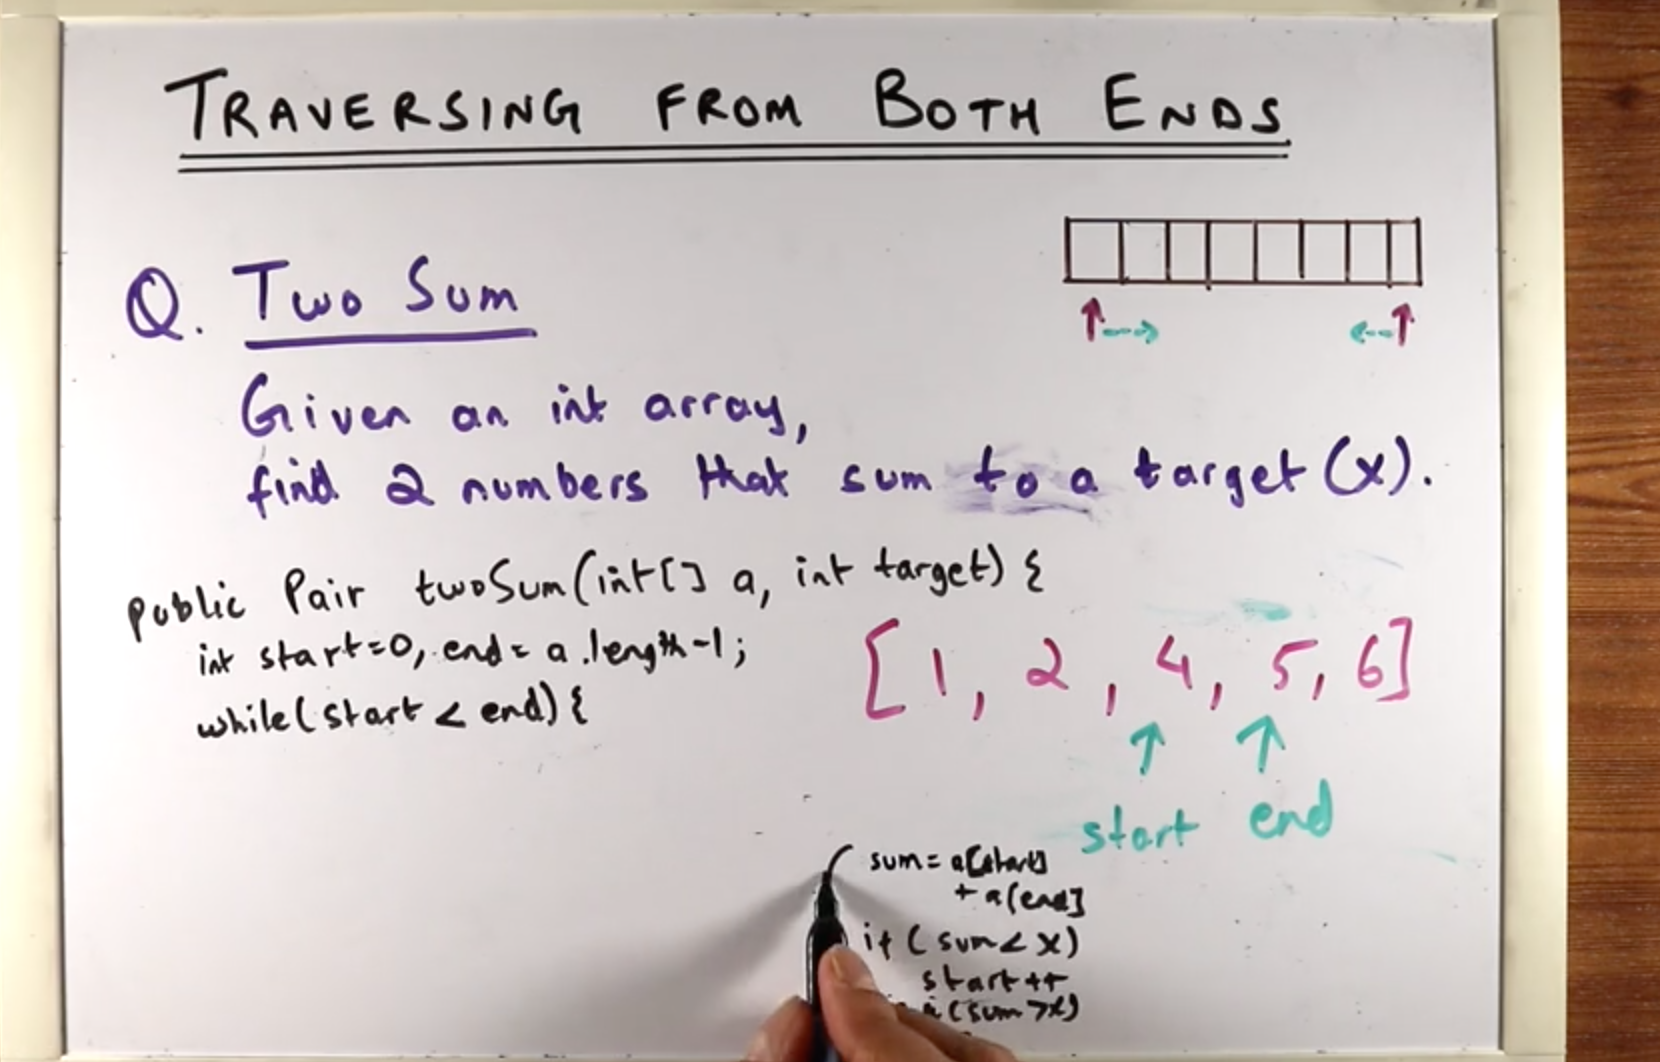 TRAVERSING FROM BOTH ENDS
Q. Two Sum
Given an int array,
find 2 numbers that sum to a target (x).
public Pair twoSum(int[] a, int target) {
int start=0, end = a.length-1;
while(start < end) {
[1, 2, 4, 5, 6]
start end
sum = a[start]
+ a[end]
if (sum < x)
start++
(sum > x)